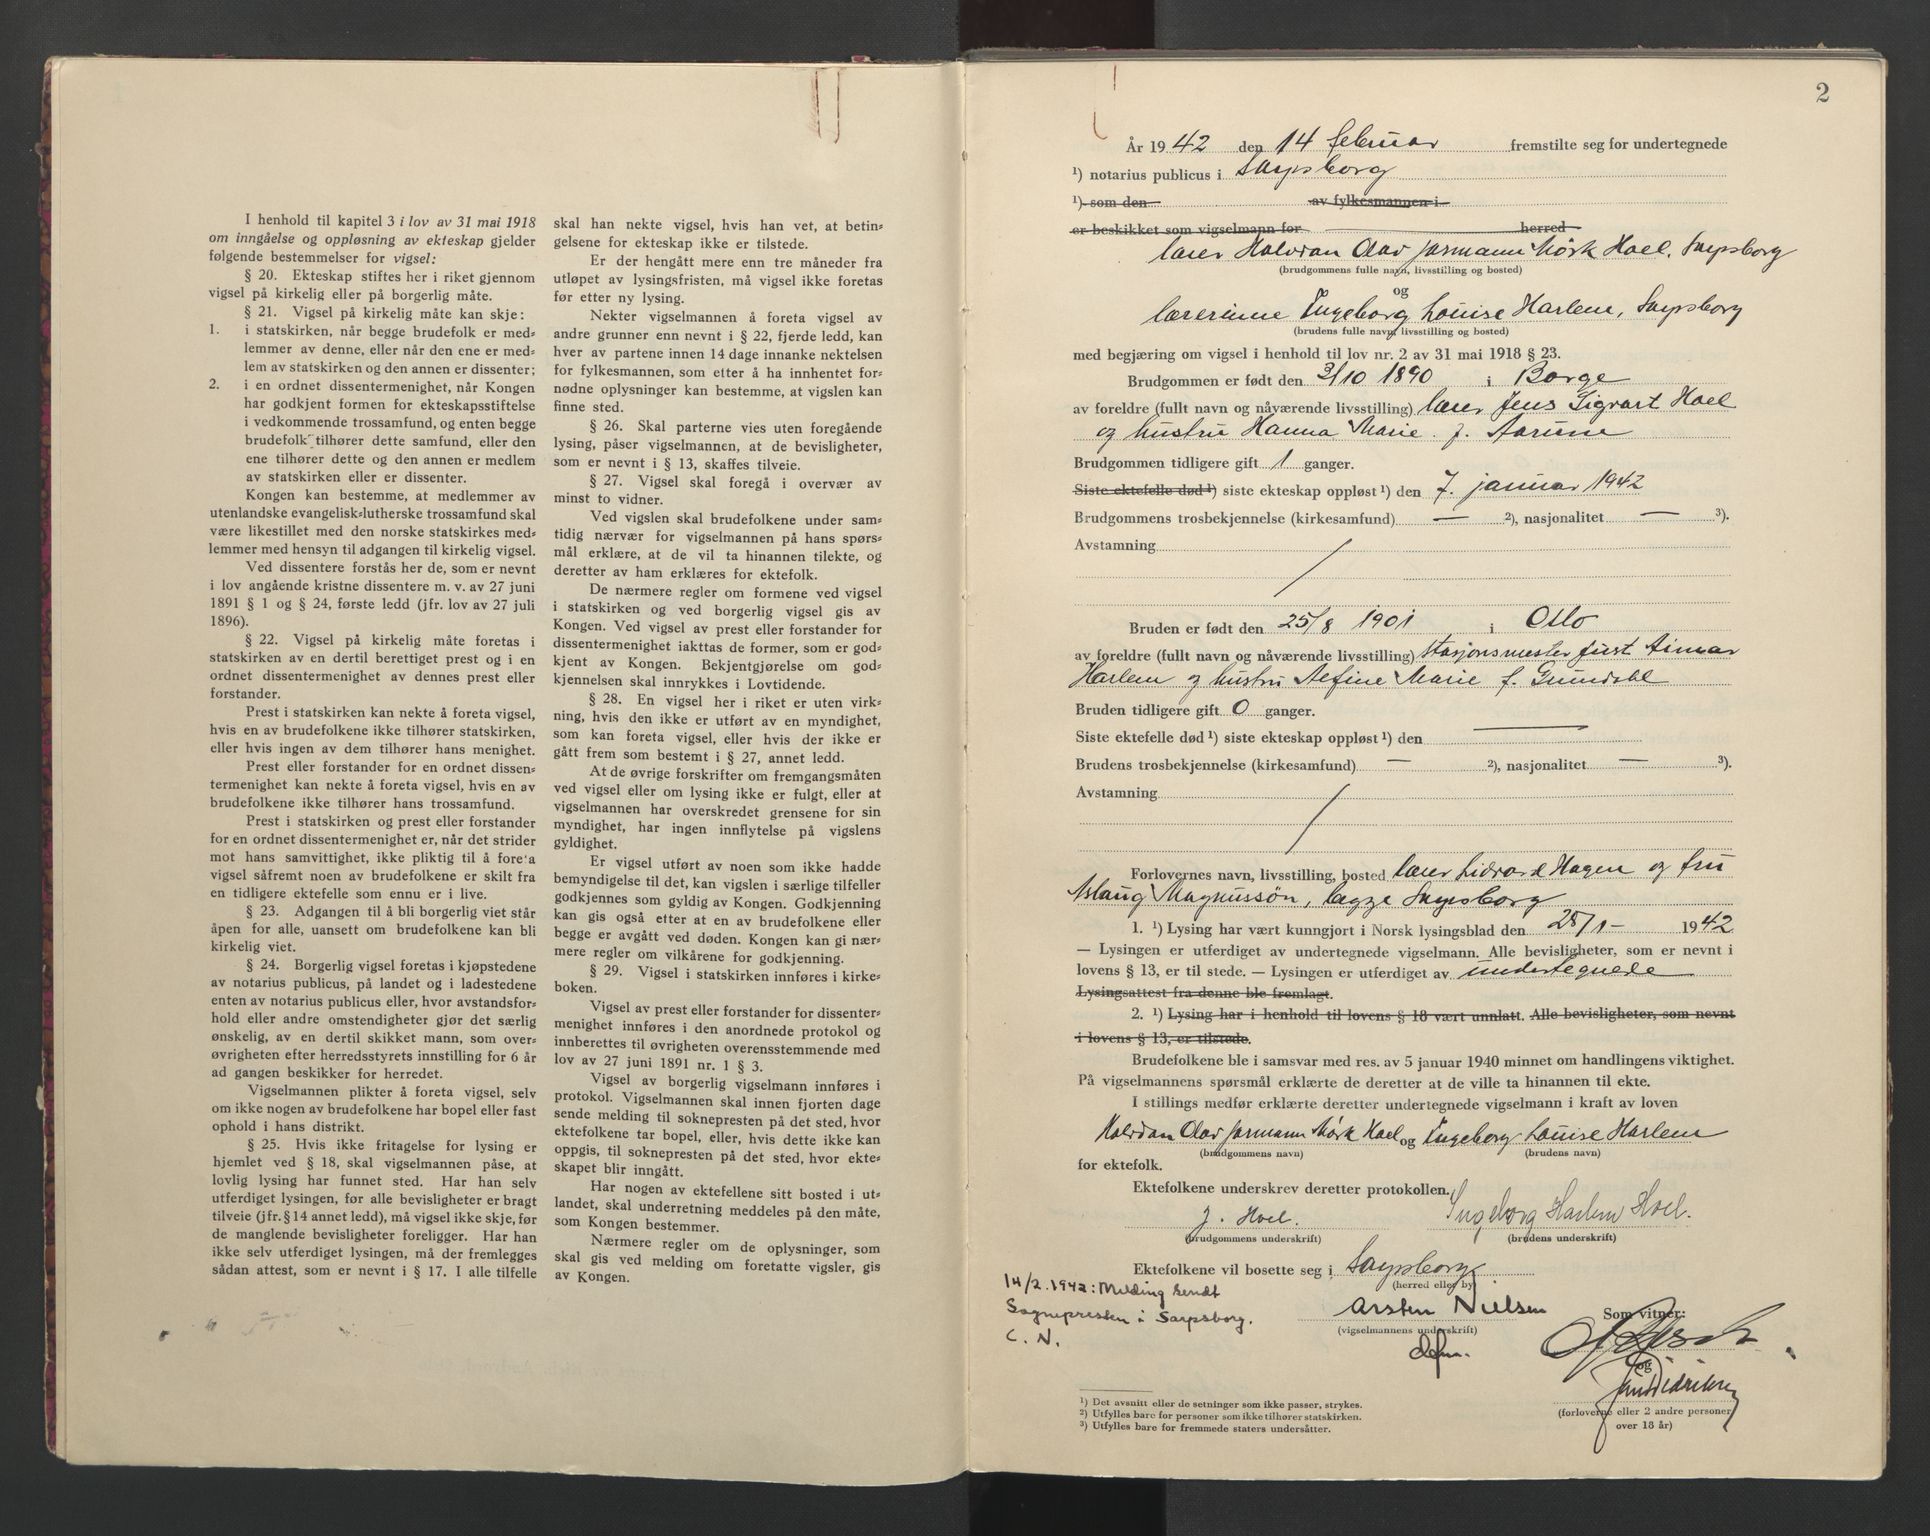 I henhold til kapitel 3 i lov av 31 mai 1918
om inngåelse og oppløsning av ekteskap gjelder
følgende bestemmelser for vigsel:
§ 20. Ekteskap stiftes her i riket gjennom
vigsel på kirkelig eller på borgerlig måte.
§ 21. Vigsel på kirkelig måte kan skje:
1. i statskirken, når begge brudefolk er med-
lemmer av denne, eller når den ene er med-
lem av statskirken og den annen er dissenter;
2. i en ordnet dissentermenighet, når Kongen
har godkjent formen for ekteskapsstiftelse
i vedkommende trossamfund, og enten begge
brudefolk tilhører dette samfund, eller den
ene tilhører dette og den annen er medlem
av statskirken eller er dissenter.
Kongen kan bestemme, at medlemmer av
utenlandske evangelisk-lutherske trossamfund skal
være likestillet med den norske statskirkes med-
lemmer med hensyn til adgangen til kirkelig vigsel.
Ved dissentere forstås her de, som er nevnt
i lov angående kristne dissentere m. v. av 27 juni
1891 § 1 og § 24, første ledd (jfr. lov av 27 juli
1896).
§ 22. Vigsel på kirkelig måte foretas i
statskirken av en dertil berettiget prest og i en
ordnet dissentermenighet av dennes prest eller
forstander.
Prest i statskirken kan nekte å foreta vigsel,
hvis en av brudefolkene ikke tilhører statskirken,
eller hvis ingen av dem tilhører hans menighet.
Prest eller forstander for en ordnet dissen-
termenighet kan nekte å foreta vigsel, hvis en av
brudefolkene ikke tilhører hans trossamfund.
Prest i statskirken og prest eller forstander
for en ordnet dissentermenighet er, når det strider
mot hans samvittighet, ikke pliktig til å foreta
vigsel såfremt noen av brudefolkene er skilt fra
en tidligere ektefelle som ennu er i live.
§ 23. Adgangen til å bli borgerlig viet står
åpen for alle, uansett om brudefolkene kan bli
kirkelig viet.
§ 24. Borgerlig vigsel foretas i kjøpstedene
av notarius publicus, på landet og i ladestedene
enten av notarius publicus eller, hvor avstandsfor-
hold eller andre omstendigheter gjør det særlig
ønskelig, av en dertil skikket mann, som over-
øvrigheten efter herredsstyrets innstilling for 6 år
ad gangen beskikker for herredet.
Vigselmannen plikter å foreta vigsel, selv
om ikke nogen av brudefolkene har bopel eller fast
ophold i hans distrikt.
§ 25. Hvis ikke fritagelse for lysing er
hjemlet ved § 18, skal vigselmannen påse, at
lovlig lysing har funnet sted. Har han selv
utferdiget lysingen, før alle bevisligheter er bragt
tilveie (jfr. § 14 annet ledd), må vigsel ikke skje, før
de manglende bevisligheter foreligger. Har han
ikke selv utferdiget lysingen, må der fremlegges
sådan attest, som er nevnt i § 17. I alle tilfelle
skal han nekte vigsel, hvis han vet, at betin-
gelsene for ekteskap ikke er tilstede.
Er der hengått mere enn tre måneder fra
utløpet av lysingsfristen, må vigsel ikke foretas
før etter ny lysing.
Nekter vigselmannen å foreta vigsel av
andre grunner enn nevnt i § 22, fjerde ledd, kan
hver av partene innen 14 dage innanke nektelsen
for fylkesmannen, som etter å ha innhentet for-
nødne oplysninger kan bestemme, at vigslen kan
finne sted.
§ 26. Skal parterne vies uten foregående
lysing, påser vigselmannen, at de bevisligheter,
som er nevnt i § 13, skaffes tilveie.
§ 27. Vigsel skal foregå i overvær av
minst to vidner.
Ved vigslen skal brudefolkene under sam-
tidig nærvær for vigselmannen på hans spørs-
mål erklære, at de vil ta hinannen tilekte, og
deretter av ham erklæres for ektefolk.
De nærmere regler om formene ved vigsel
i statskirken og ved borgerlig vigsel gis av
Kongen. Ved vigsel av prest eller forstander for
dissentermenighet iakttas de former, som er god-
kjent av Kongen. Bekjentgjørelse om god-
kjennelsen skal innrykkes i Lovtidende.
§ 28. En vigsel her i riket er uten virk-
ning, hvis den ikke er utført av en myndighet,
som kan foreta vigsel, eller hvis der ikke er
gått frem som bestemt i § 27, annet ledd.
At de øvrige forskrifter om fremgangsmåten
ved vigsel eller om lysing ikke er fulgt, eller at
vigselmannen har overskredet grensene for sin
myndighet, har ingen innflytelse på vigslens
gyldighet.
Er vigsel utført av noen som ikke hadde
bemyndigelse til det, kan vigslen i særlige tilfeller
godkjennes som gyldig av Kongen. Godkjenning
kan gis også etter at en av brudefolkene eller
begge er avgått ved døden. Kongen kan gi nær-
mere regler om vilkårene for godkjenning.
§ 29. Vigsel i statskirken innføres i kirke-
boken.
Vigsel av prest eller forstander for dissenter-
menighet innføres i den anordnede protokol og
innberettes til øvrigheten overensstemmende med
lov av 27 juni 1891 nr. 1 § 3.
Vigsel av borgerlig vigselmann innføres i
protokol. Vigselmannen skal innen fjorten dage
sende melding til soknepresten på det sted, hvor
ektefolkene tar bopel, eller, hvis dette ikke kan
oppgis, til soknepresten på det sted, hvor ekte-
skapet blir inngått.
Har nogen av ektefellene sitt bosted i ut-
landet, skal underretning meddeles på den måte,
som Kongen bestemmer.
Nærmere regler om de oplysninger, som
skal gis ved melding om foretatte vigsler, gis
av Kongen.
2
År 1942 den 14 februar fremstilte seg for undertegnede
¹) notarius publicus i Sarpsborg
¹) som den av fylkesmannen i
er beskikket som vigselmann for herred
lærer Halvdan Olav Jarmann Mörk Hoel, Sarpsborg
(brudgommens fulle navn, livsstilling og bosted)
og
lærerinne Ingeborg Louise Harlem, Sarpsborg
(brudens fulle navn, livsstilling og bosted)
med begjæring om vigsel i henhold til lov nr. 2 av 31 mai 1918 § 23.
Brudgommen er født den 3/10 1890 i Borge
av foreldre (fullt navn og nåværende livsstilling) lærer Jens Sigvart Hoel
og hustru Hanna Marie f. Aarum
Brudgommen tidligere gift 1 ganger.
Siste ektefelle død ¹) siste ekteskap oppløst ¹) den 7. januar 1942
Brudgommens trosbekjennelse (kirkesamfund) — ²), nasjonalitet — ³).
Avstamning /
Bruden er født den 25/8 1901 i Oslo
av foreldre (fullt navn og nåværende livsstilling) stasjonsmester Just Aimar
Harlem og hustru Alfine Marie f. Grundahl
Bruden tidligere gift 0 ganger.
Siste ektefelle død ¹) siste ekteskap oppløst ¹) den —
Brudens trosbekjennelse (kirkesamfund) — ²), nasjonalitet — ³).
Avstamning /
Forlovernes navn, livsstilling, bosted lærer Sidvard Hagen og fru
Aslaug Magnussön, begge Sarpsborg
1. ¹) Lysing har vært kunngjort i Norsk lysingsblad den 28/1 - 1942
— Lysingen er utferdiget av undertegnede vigselmann. Alle bevisligheter, som er nevnt i
lovens § 13, er til stede. — Lysingen er utferdiget av undertegnede
Lysingsattest fra denne ble fremlagt.
2. ¹) Lysing har i henhold til lovens § 18 vært unnlatt. Alle bevisligheter, som nevnt
i lovens § 13, er tilstede.
Brudefolkene ble i samsvar med res. av 5 januar 1940 minnet om handlingens viktighet.
På vigselmannens spørsmål erklærte de deretter at de ville ta hinannen til ekte.
I stillings medfør erklærte deretter undertegnede vigselmann i kraft av loven
Halvdan Olav Jarmann Mörk Hoel og Ingeborg Louise Harlem
(brudgommens navn) (brudens navn)
for ektefolk.
Ektefolkene underskrev deretter protokollen.
J. Hoel. Ingeborg Harlem Hoel.
(brudgommens underskrift) (brudens underskrift)
Ektefolkene vil bosette seg i Sarpsborg
(herred eller by)
14/2.1942: Melding sendt
Sognepresten i Sarpsborg.
C. N.
Carsten Nielsen
(vigselmannens underskrift)
dfm.
Som vitner:
og
(forloverne eller 2 andre personer
over 18 år)
¹) Det avsnitt eller de setninger som ikke passer, strykes.
²) Utfylles bare for personer som ikke tilhører statskirken.
³) Utfylles bare for fremmede staters undersåtter.